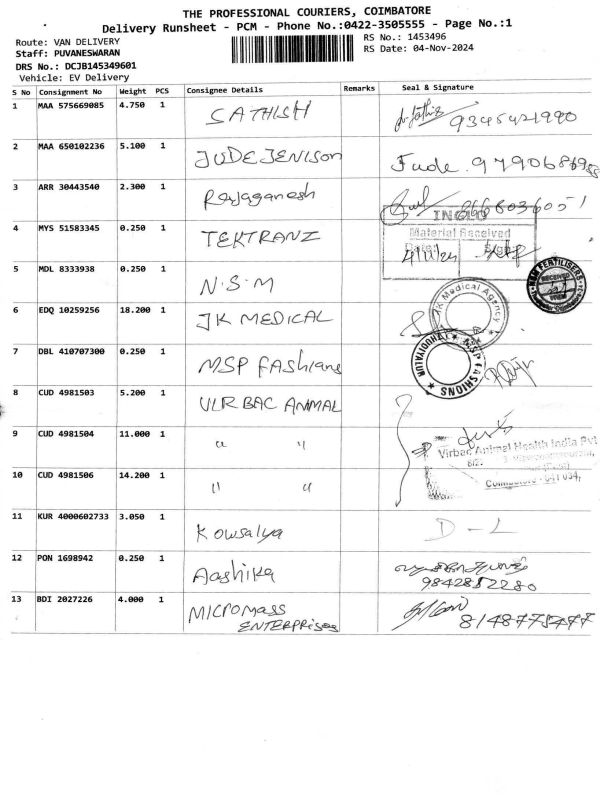 THE PROFESSIONAL COURIERS, COIMBATORE
Delivery Runsheet - PCM - Phone No.:0422-3505555 - Page No.:1
Route: VAN DELIVERY
RS No.: 1453496
Staff: PUVANESWARAN
RS Date: 04-Nov-2024
DRS No.: DCJB145349601
Vehicle: EV Delivery
S No Consignment No Weight PCS Consignee Details Remarks Seal & Signature
1 MAA 575669085 4.750 1 SATHISH
2 MAA 650102236 5.100 1 JUDE JENISON Jude.
3 ARR 30443540 2.300 1 Rajaganesh
4 MYS 51583345 0.250 1 TEKTRANZ
Material Received
4/11/24
5 MDL 8333938 0.250 1 N.S.M
FERTILISERS
RECEIVED
6 EDQ 10259256 18.200 1 JK MEDICAL
JK Medical Agency
7 DBL 410707300 0.250 1 MSP FASHIANS
MSP FASHIONS
8 CUD 4981503 5.200 1 VLR BAC ANIMAL
9 CUD 4981504 11.000 1 " "
Virbac Animal Health India Pvt
Coimbatore - 641 034,
10 CUD 4981506 14.200 1 " "
11 KUR 4000602733 3.050 1 Kowsalya D-L
12 PON 1698942 0.250 1 Aashika
9842852280
13 BDI 2027226 4.000 1 MICROMASS
ENTERPRISES